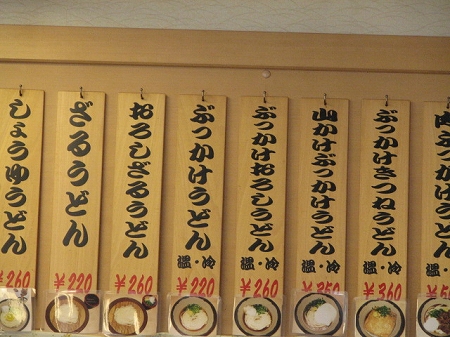 しょうゆうどん
¥260
ざるうどん
¥220
おろしざるうどん
¥260
ぶっかけうどん
温・冷
¥220
ぶっかけおろしうどん
温・冷
¥260
山かけぶっかけうどん
温・冷
¥350
ぶっかけきつねうどん
温・冷
¥360
肉ぶっかけうどん
温・冷